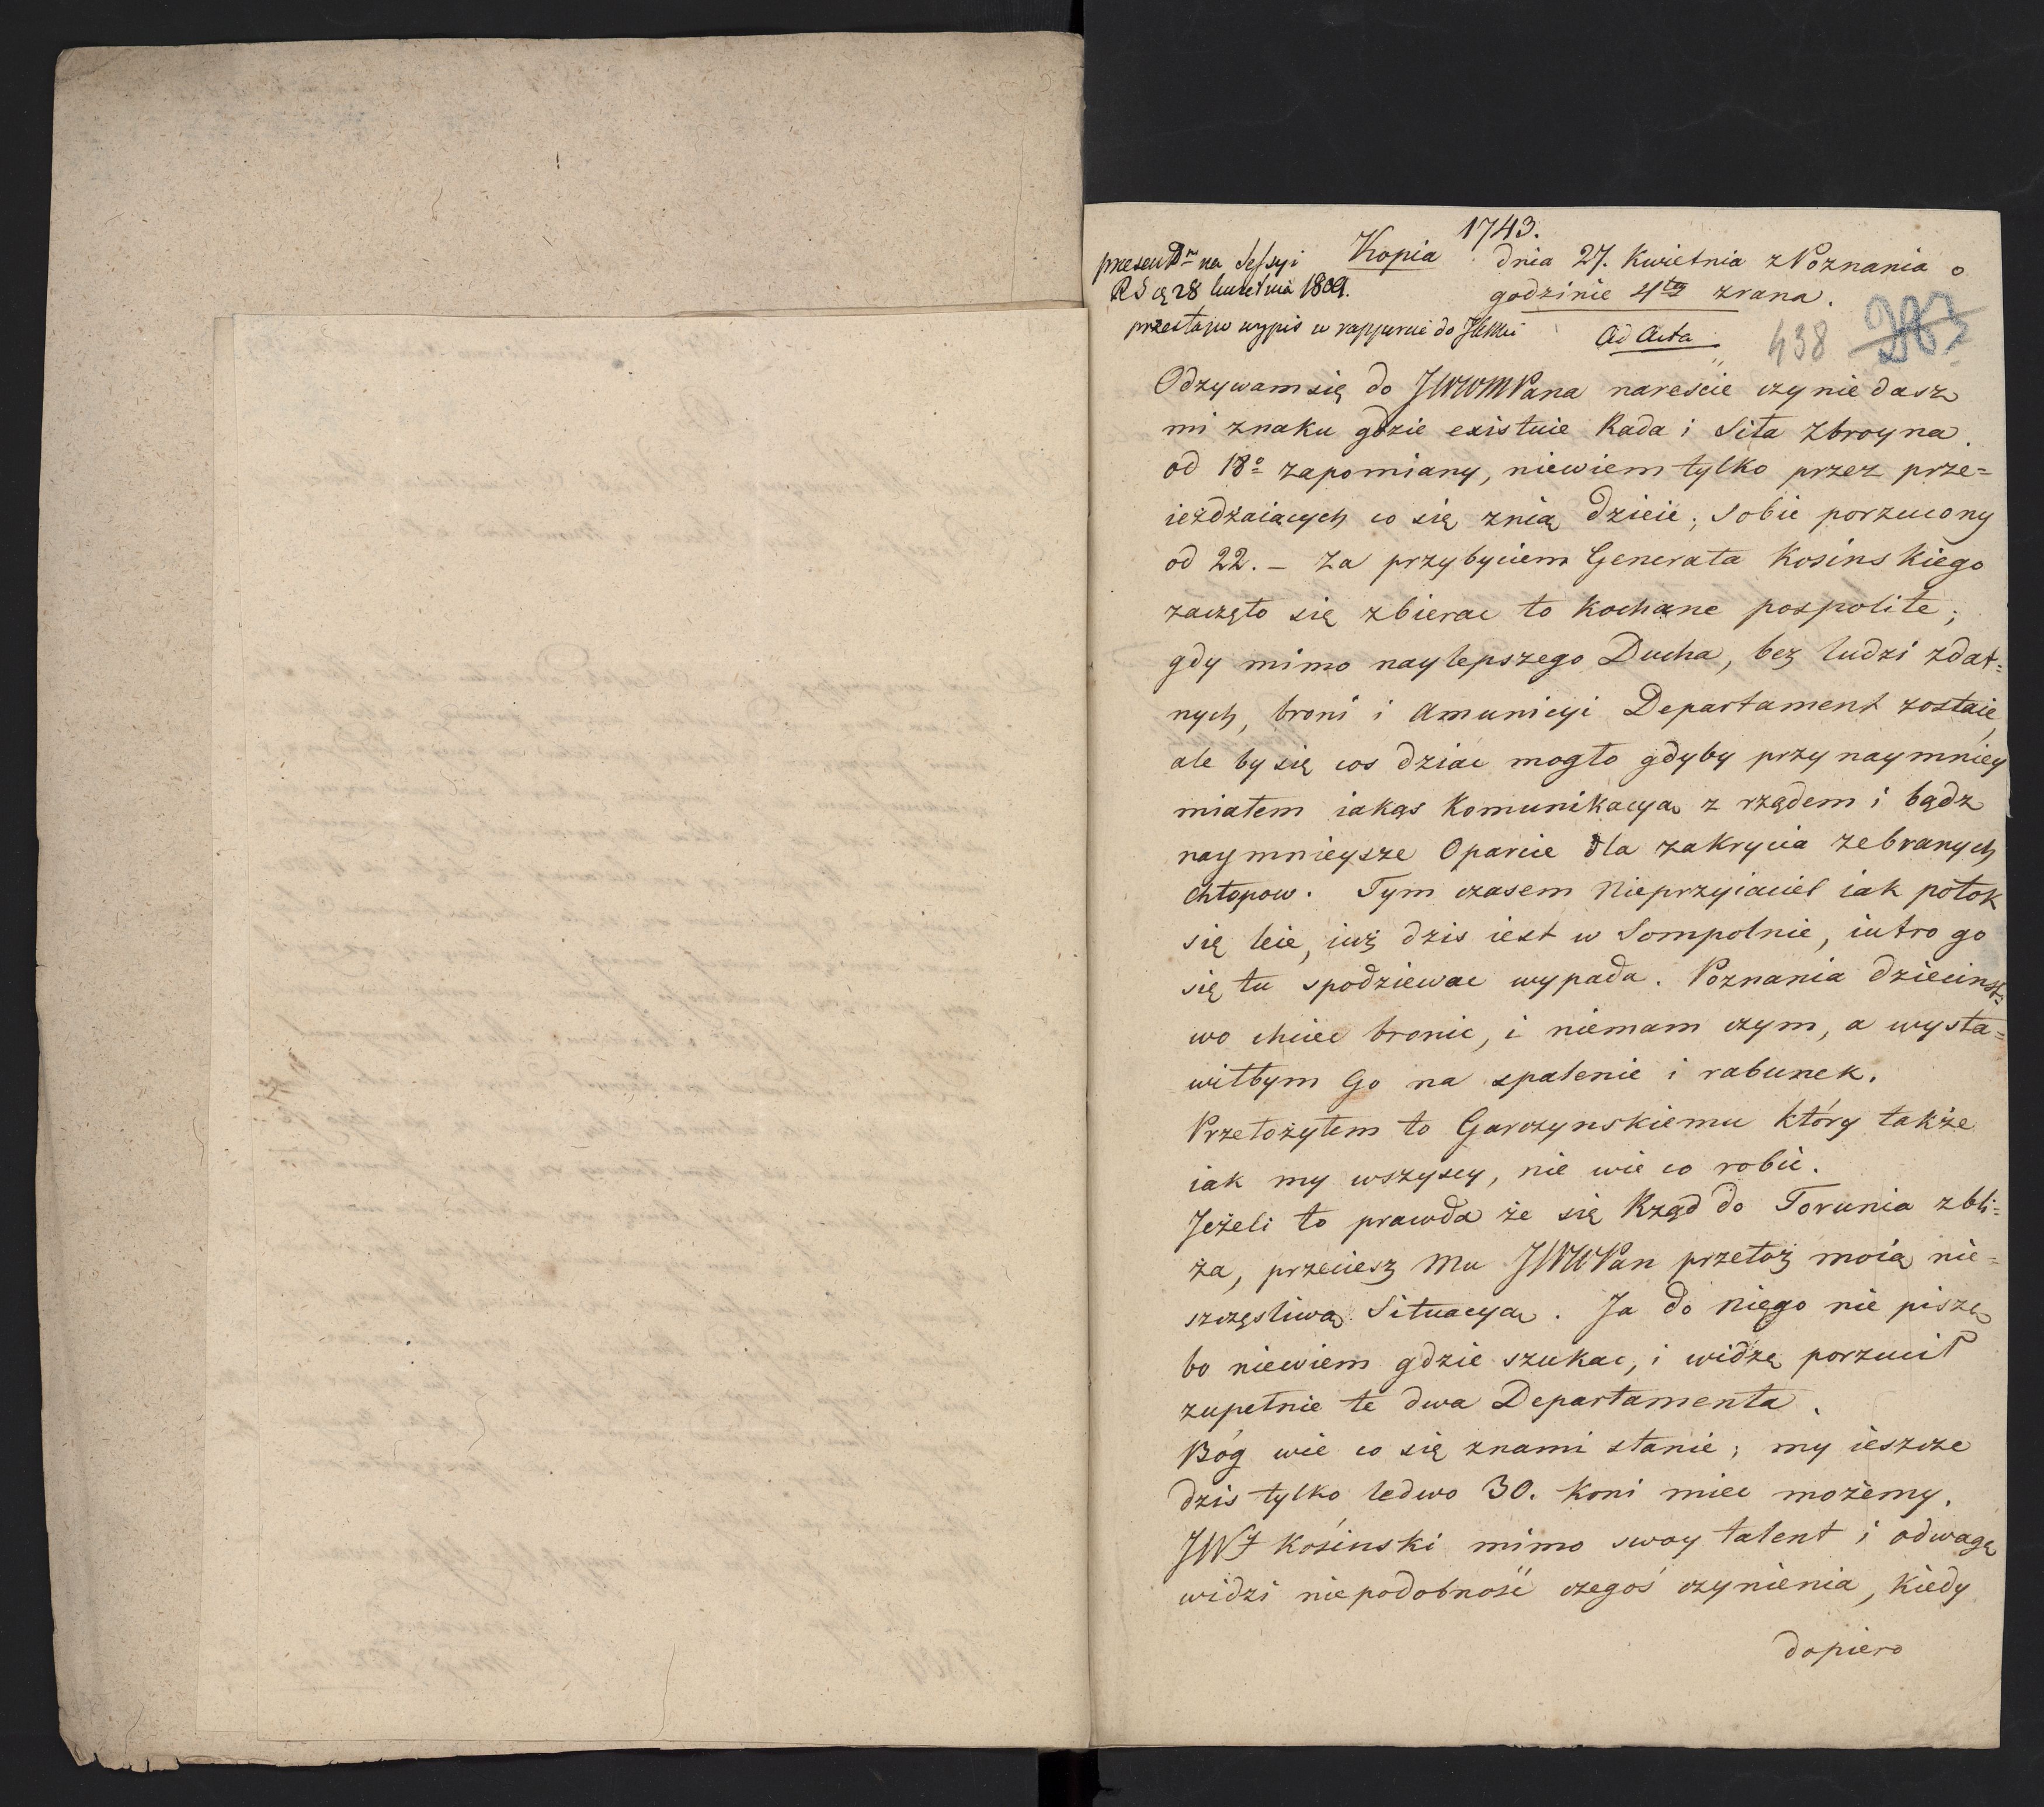 1743.
Kopia
dnia 27. Kwietnia z Poznania o
godzinie 4tey zrana.
na Sessyi
28 kwietnia 1809.
wypis w rapporcie do
Ad Acta
438
Odzywam się do JWWMPana nareście czy nie dasz
mi znaku gdzie existuie Rada i Siła Zbroyna.
od 18o zapomiany, niewiem tylko przez prze=
ieżdżaiących co się znią dzieie; Sobie porzucony
od 22. – Za przybyciem Generała Kosinskiego
zaczęto się zbierac to Kochane pospolite;
gdy mimo naylepszego Ducha, bez ludzi zdat=
nych, broni i Amunicyi Departament zostaie,
ale by się cos dziac mogło gdyby przynaymniey
miałem iakąs Komunikacyą z rządem i bądz
naymnieysze Oparcie dla zakrycia zebranych
Chłopow. Tym czasem Nieprzyiaciel iak potok
się leie, iuż dzis iest w Sompolnie, iutro go
się tu spodziewac wypada. Poznania dziecinst=
wo chciec bronic, i niemam czym, a wysta=
wiłbym Go na spalenie i rabunek.
Przełożyłem to Garczynskiemu który także
iak my wszyscy, nie wie co robic.
Jeżeli to prawda że się Rząd do Torunia zbli=
ża, przeciesz Mu JWWPan przełoż moią nie=
szczęsliwą Situacyą. Ja do niego nie piszę
bo niewiem gdzie szukac, i widzę porzucił
zupełnie te dwa Departamenta.
Bóg wie co się znami stanie; my ieszcze
dzis tylko ledwo 30. koni miec możemy.
JWJ Kosinski mimo swoy talent i odwagę
widzi niepodobność czegoś czynienia, kiedy
dopiero